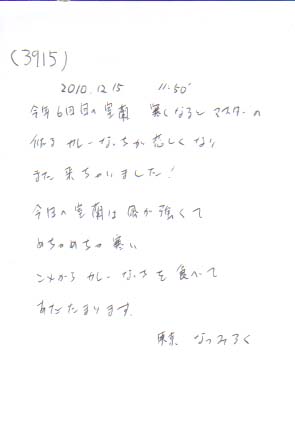 (3915)
2010.12.15 11:50
今年6回目の室蘭 寒くなると マスターの
作る カレーなっちが 恋しくなり
また 来ちゃいました!
今日の室蘭は 風が強くて
めちゃめちゃ寒い
これから カレーなっちを 食べて
あたたまります.
東京 なつみろく